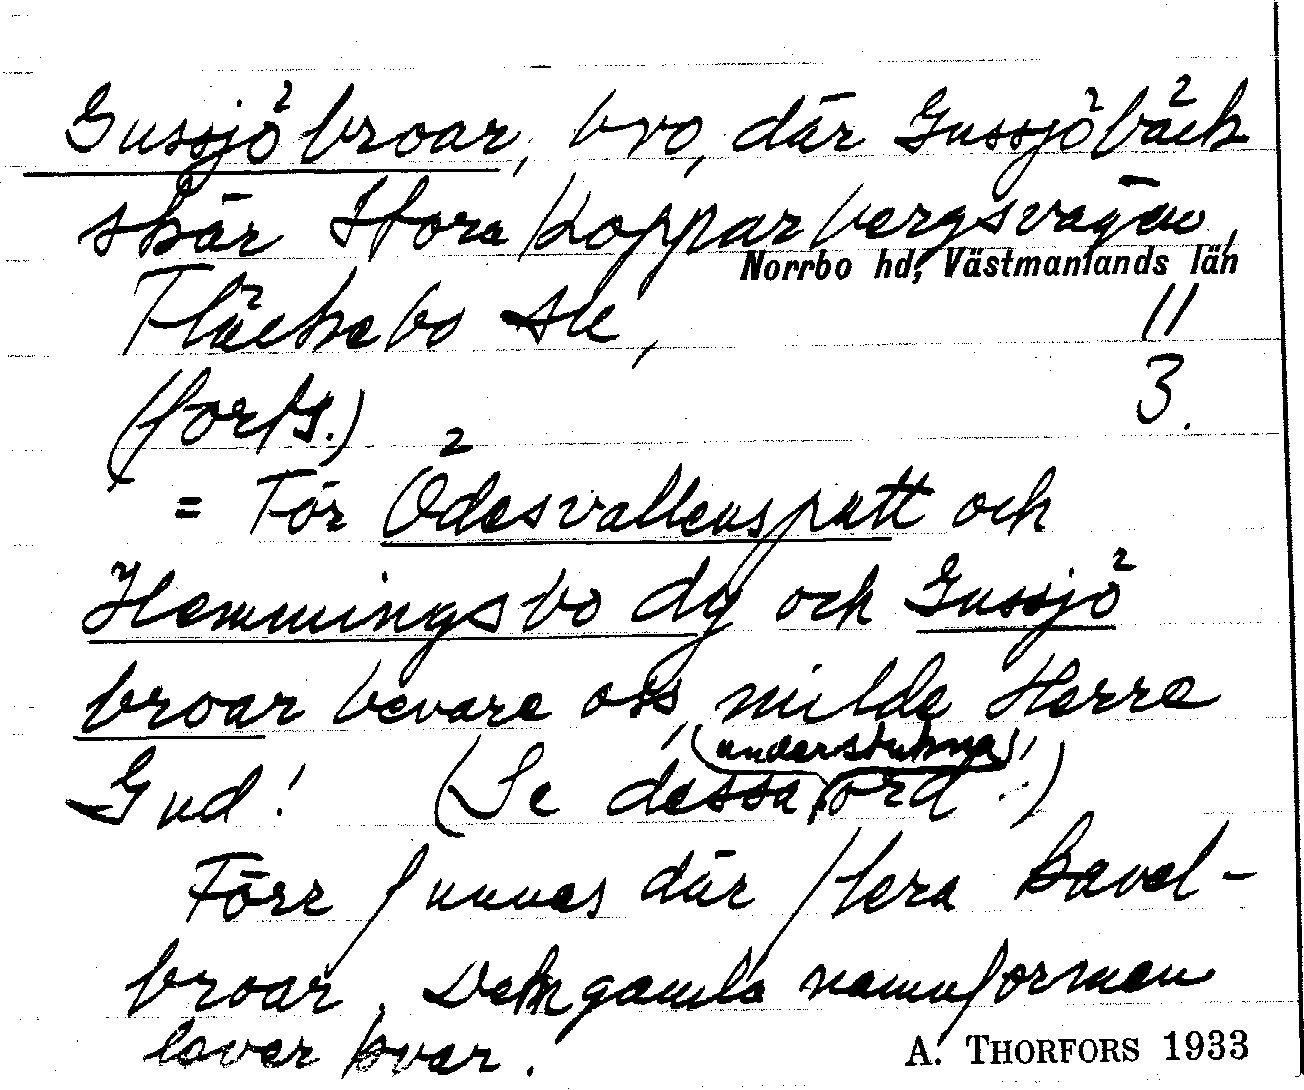 Gussjöbroar, bro, där Gussjöbäck
skär Stora Kopparbergsvägen,
Norrbo hd, Västmanlands län
Fläckebo sk, 11
(forts.) 3.
= För Ödesvallensputt och
Hemmingsbo dy och Gussjö
broar bevare oss, milde Herre
Gud! (Se dessa (understukna) ord!)
Förr funnes där flera kavel-
broar. Den gamla namnformen
lever kvar.
A. THORFORS 1933